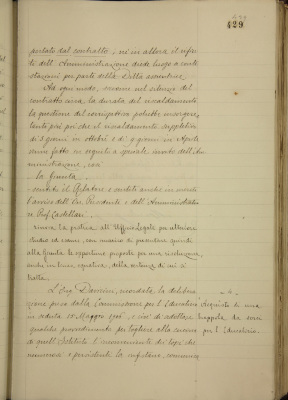 429
portato dal contratto, nè in allora il rifiu-
to dell'Amministrazione diede luogo a conte-
stazioni per parte della Ditta assuntrice.
Ad ogni modo, siccome nel silenzio del
contratto circa la durata del riscaldamento
la questione del corrispettivo potrebbe insorgere,
tanto più poi che il riscaldamento suppletivo
di giorni in ottobre e di 9 giorni in Aprile
venne fatto in seguito a speciale invito dell'Am-
ministrazione, così
la Giunta
sentito il Relatore e sentito anche in merito
l'avviso dell' Presidente e dell'Amministrato-
re Prof. Castellari
rinvia la pratica all'Ufficio Legale per ulteriore
studio ed esame, con incarico di presentare quindi
alla Giunta le opportune proposte per una risoluzione,
anche in linea equitativa, della vertenza di cui si
tratta.
L'Ing. ricordata la delibera-
zione presa dalla Commissione per l'Educatorio
in seduta 18 Maggio 1906, e cioè di adottare
qualche provvedimento per togliere alla cucina per l'Educatorio
di quell'Istituto l'inconveniente dei topi che
numerosi e persistenti la infestano, comunica